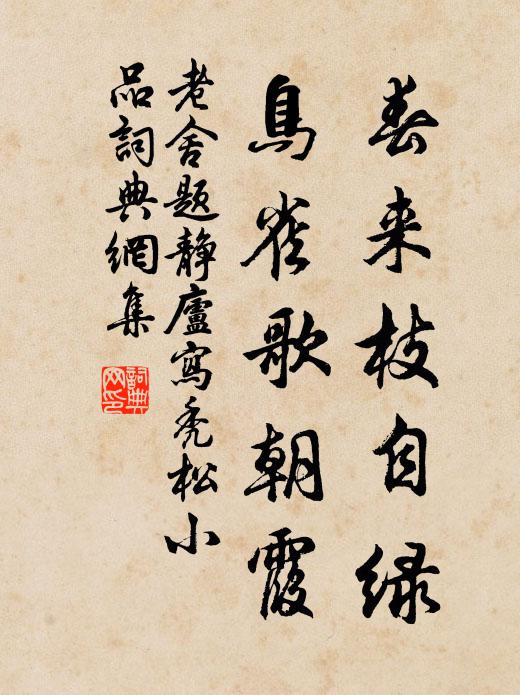 春来枝自绿
鳥雀歌朝霞
老舍題静廬寫秃松小
品詞典網集
詞典
网印